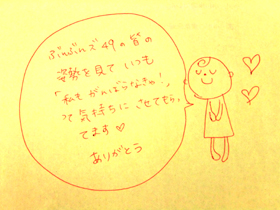 ぶんぶんズ49の皆の
姿勢を見ていつも
「私もがんばらなきゃ！」
って気持ちにさせてもらっ
てます♡
ありがとう